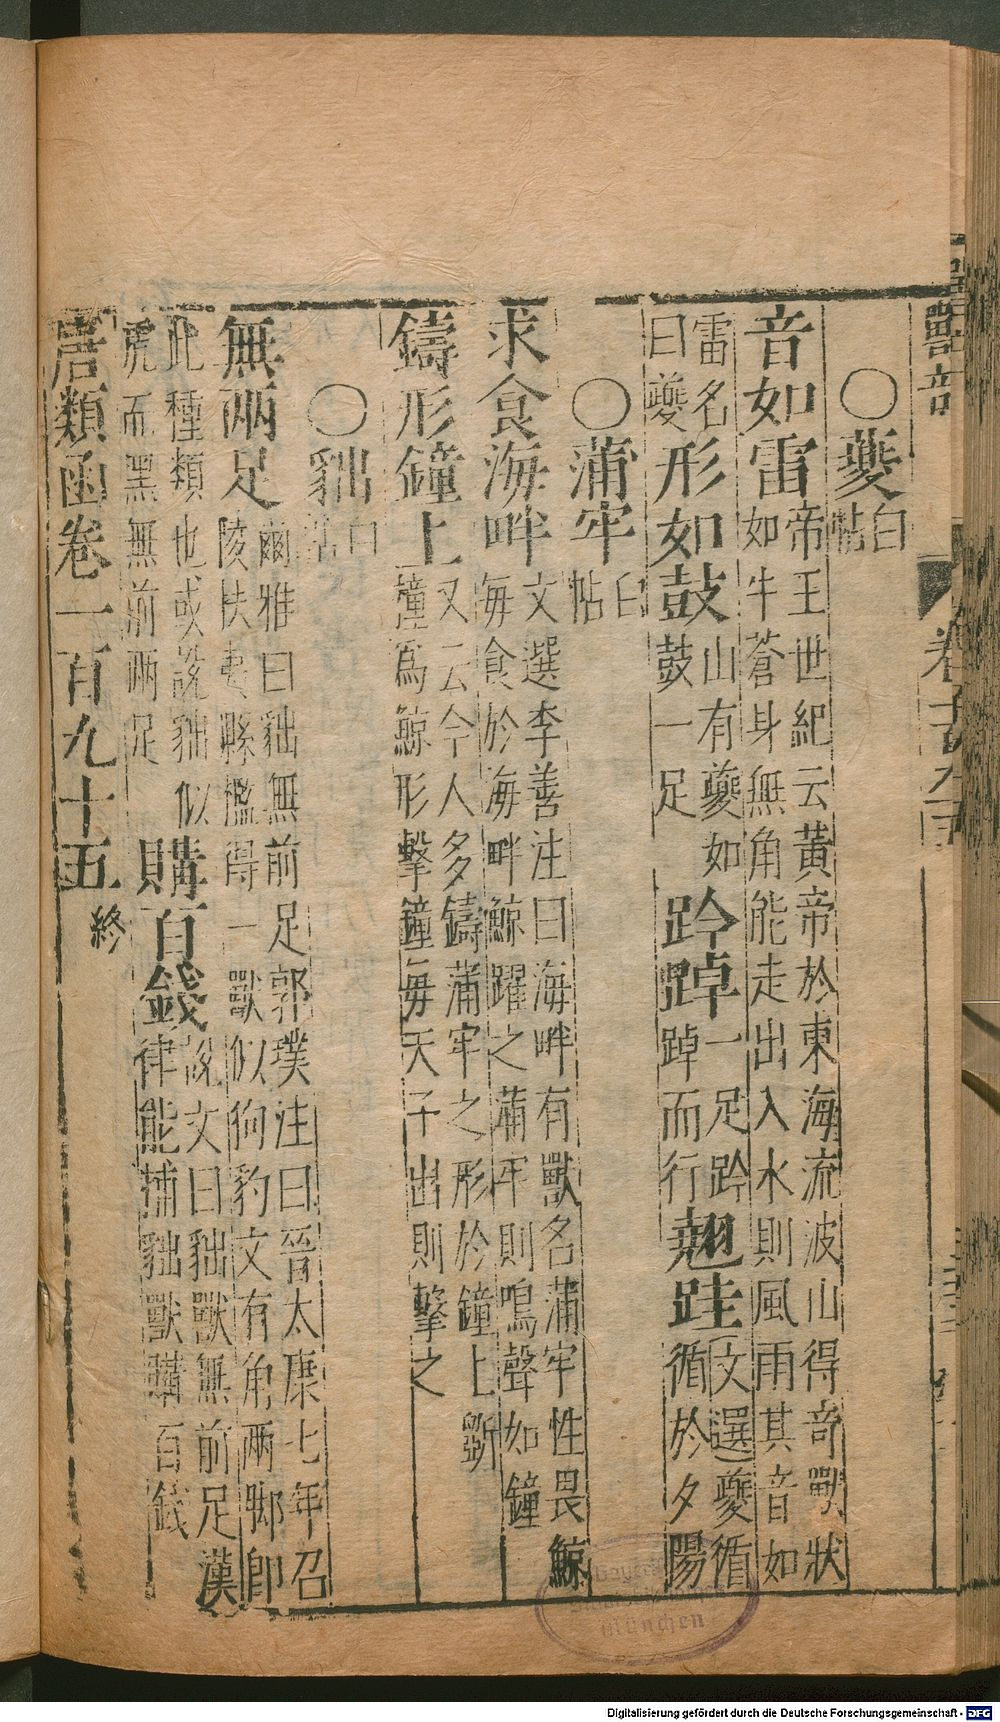 獸部
卷一百九十五
○夔白帖
音如雷帝王世紀云黃帝於東海流波山得奇獸狀如牛蒼身無角能走出入水則風雨其音如
雷名曰夔形如鼓山有夔如鼓一足趻踔一足趻踔而行翹踛文選夔循循於夕陽
○蒲牢白帖
求食海畔文選李善注曰海畔有獸名蒲牢性畏鯨每食於海畔鯨躍之蒲牢則鳴聲如鐘
鑄形鐘上又云今人多鑄蒲牢之形於鐘上斵撞爲鯨形擊鐘毎天子出則擊之
○貀白帖
無兩足爾雅曰貀無前足郭璞注曰晉太康七年召陵扶夷縣檻得一獸似狗豹文有角兩脚卽
此種類也或說貀似虎而黑無前兩足購百錢說文曰貀獸無前足漢律能捕貀獸購百錢
唐類函卷一百九十五終
Bayerische
Staatsbibliothek
München
Digitalisierung gefördert durch die Deutsche Forschungsgemeinschaft - DFG